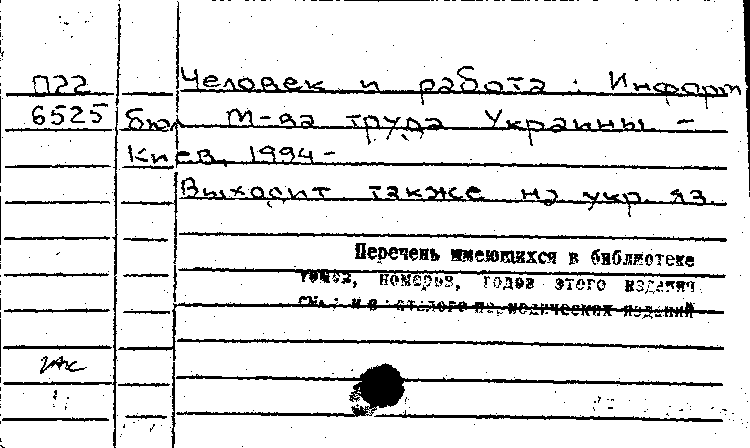 П22
6525
Человек и работа : Информ
бюл М-ва труда Украины. -
Киев, 1994-
Выходит также на укр. яз.
Перечень имеющихся в библиотеке
томов, номеров, годов этого издания
см. в каталоге периодических изданий